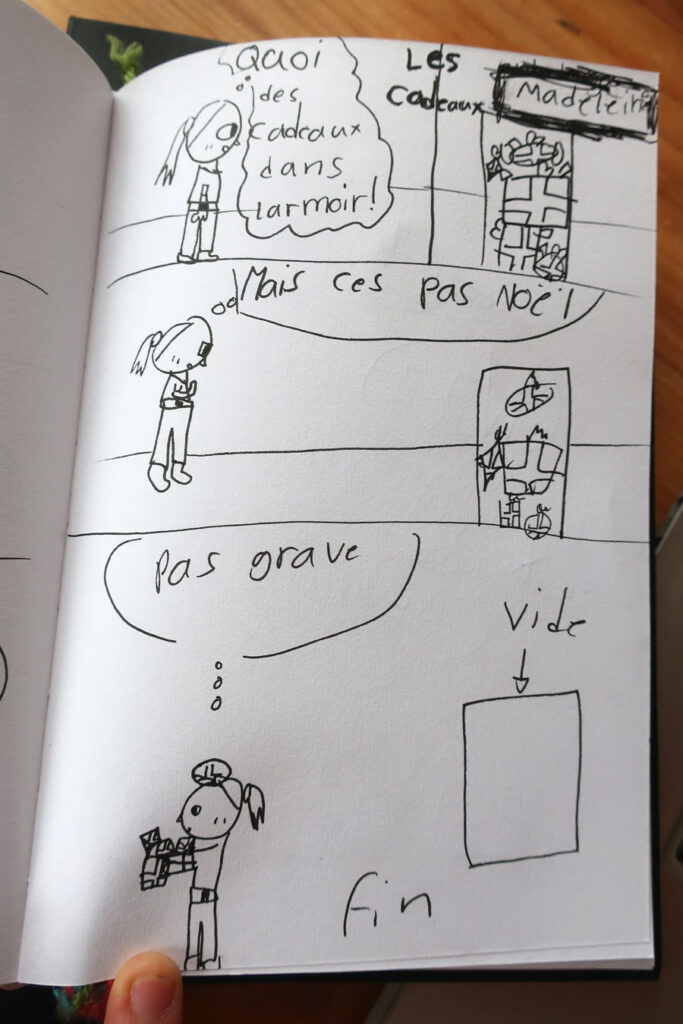 Quoi
des
cadeaux
dans
larmoir!
Les
Cadeaux
Madeleine
Mais ces pas Noël
pas grave
Vide
Fin